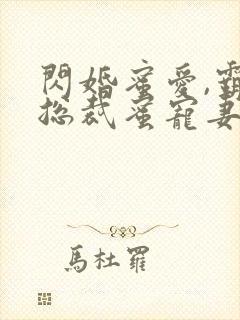 閃婚蜜愛,霸
總裁蜜寵妻
馬杜羅